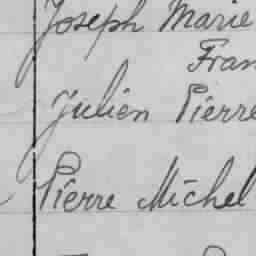 Joseph Marie
Fran
Julien Pierre
Pierre Michel